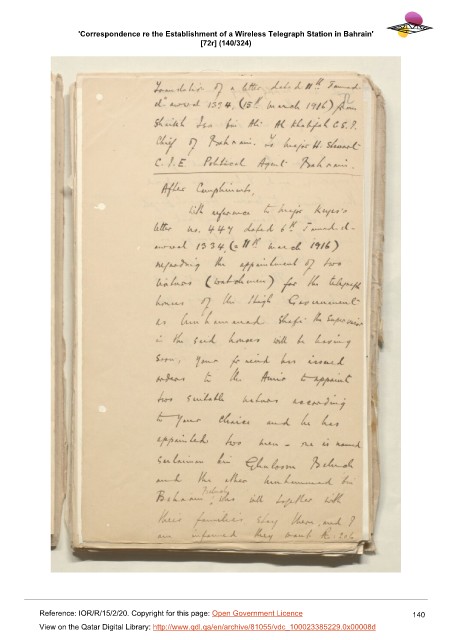 'Correspondence re the Establishment of a Wireless Telegraph Station in Bahrain'
[72r] (140/324)
Translation of a letter dated 11th Jamad-
di-awwal 1334, (15th March 1916) from
Sheikh Isa bin Ali Al Khalifah C.S.I.
Chief of Bahrain. To Major H. Stewart
C.I.E Political Agent Bahrain.
After Compliments,
With reference to Major Keyes's
letter no. 447 dated 6th Jamad-el-
awwal 1334 (11th March 1916)
regarding the appointment of two
natoors (watchmen) for the telegraph
houses of the High Government
as Mohammad Shafi the Supervisor
in the said houses will be leaving
soon, your friend has issued
orders to the Amir to appoint
two suitable natoors according
to your choice and he has
appointed two men - one is named
bin Ghuloom Beluch
and the other Mohammed bin
Bahram Beluch, who will together with
their families stay there, and I
am informed they want Rs.
Reference: IOR/R/15/2/20. Copyright for this page: Open Government Licence
View on the Qatar Digital Library: http://www.qdl.qa/en/archive/81055/vdc_100023385229.0x00008d
140